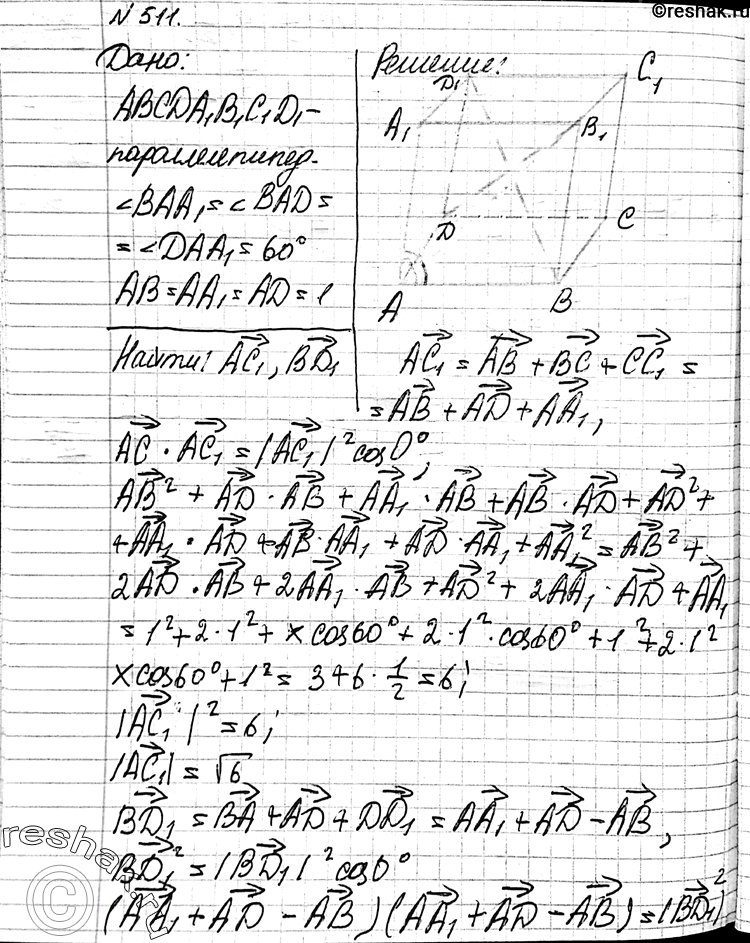 ©reshak.ru
N 511.
Дано:
ABCDA₁B₁C₁D₁-
параллелепипед.
∠BAA₁=∠BAD=
=∠DAA₁=60°
AB=AA₁=AD=1
Найти: AC₁, BD₁
Решение:
D₁ C₁
A₁ B₁
D C
A B
AC₁ = AB + BC + CC₁ =
= AB + AD + AA₁,
AC · AC₁ = |AC₁|² cos0°;
AB² + AD · AB + AA₁ · AB + AB · AD + AD² +
+ AA₁ · AD + AB · AA₁ + AD · AA₁ + AA₁² = AB² +
2AD · AB + 2AA₁ · AB + AD² + 2AA₁ · AD + AA₁
= 1² + 2·1² + × cos60° + 2·1²·cos60° + 1² + 2·1²
× cos60° + 1² = 3+6·1/2 = 6;
|AC₁|² = 6;
|AC₁| = √6
BD₁ = BA + AD + DD₁ = AA₁ + AD - AB,
BD₁² = |BD₁|² cos0°
(AA₁ + AD - AB)(AA₁ + AD - AB) = |BD₁|²
© reshak.ru